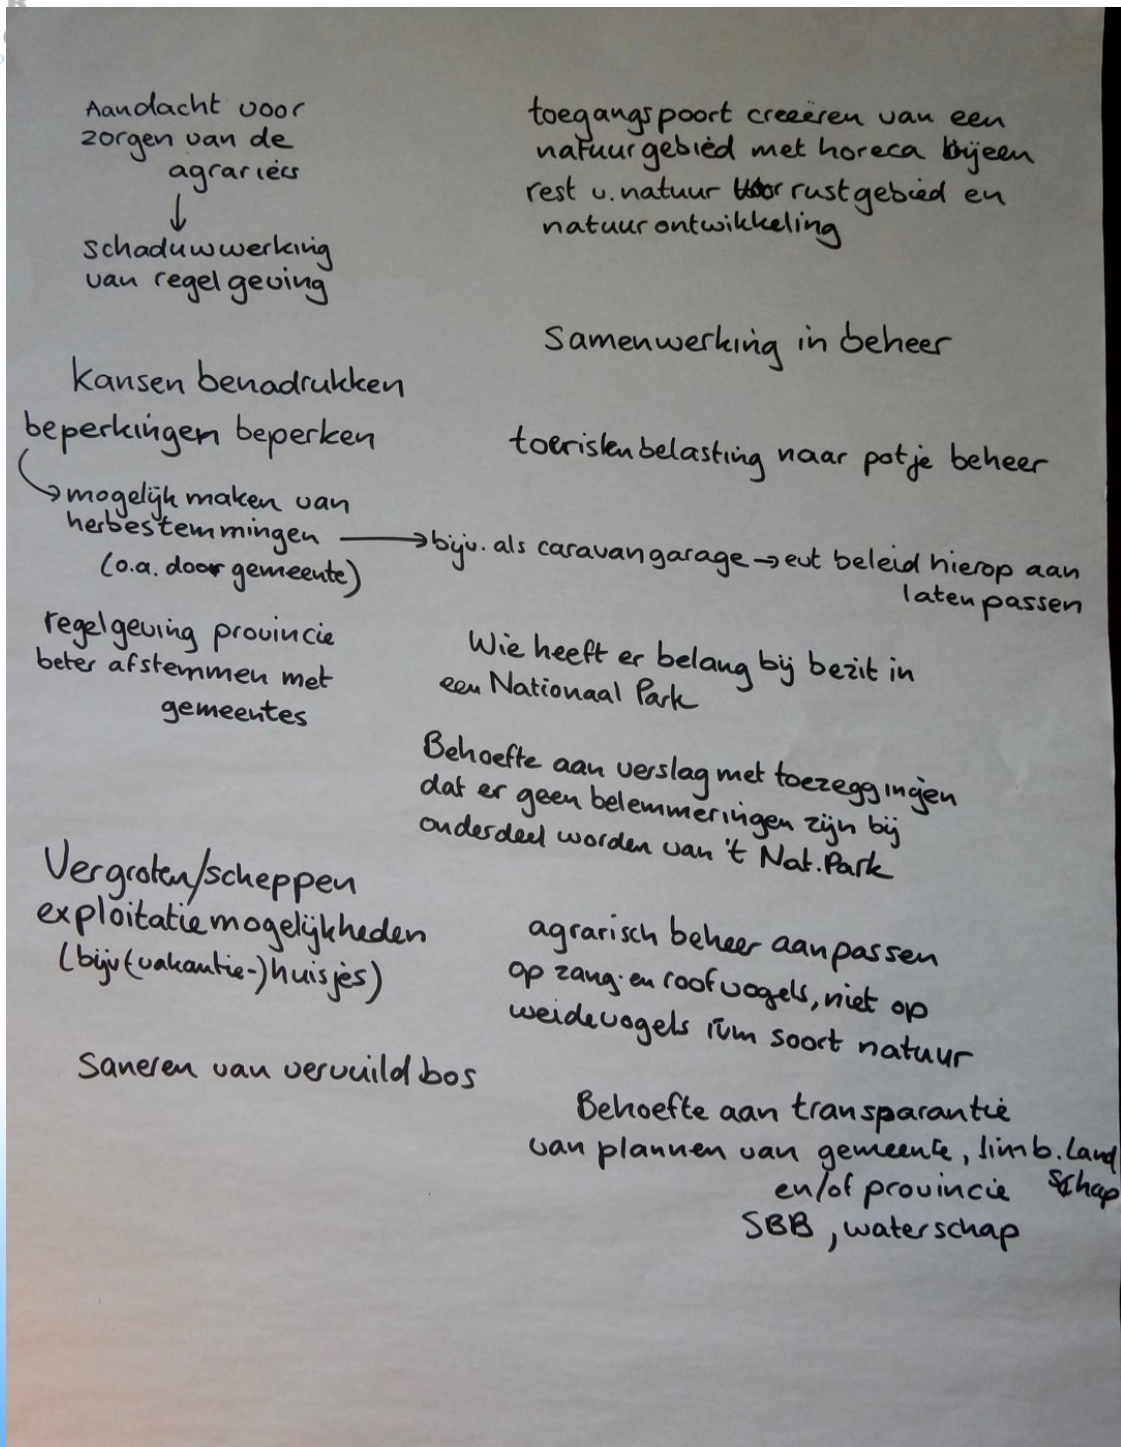 Aandacht voor
zorgen van de
agrariërs
↓
schaduwwerking
van regelgeving
kansen benadrukken
beperkingen beperken
→ mogelijk maken van
herbestemmingen → bijv. als caravangarage → evt beleid hierop aan
laten passen
(o.a. door gemeente)
regelgeving provincie
beter afstemmen met
gemeentes
Vergroten/scheppen
exploitatiemogelijkheden
(bijv (vakantie-)huisjes)
Saneren van vervuild bos
toegangspoort creeëren van een
natuurgebied met horeca bijeen
rest v. natuur voor rustgebied en
natuurontwikkeling
Samenwerking in beheer
toeristenbelasting naar potje beheer
Wie heeft er belang bij bezit in
een Nationaal Park
Behoefte aan verslag met toezeggingen
dat er geen belemmeringen zijn bij
onderdeel worden van 't Nat. Park
agrarisch beheer aanpassen
op zang- en roofvogels, niet op
weidevogels ivm soort natuur
Behoefte aan transparantie
van plannen van gemeente, limb. Land
schap
en/of provincie
SBB, waterschap